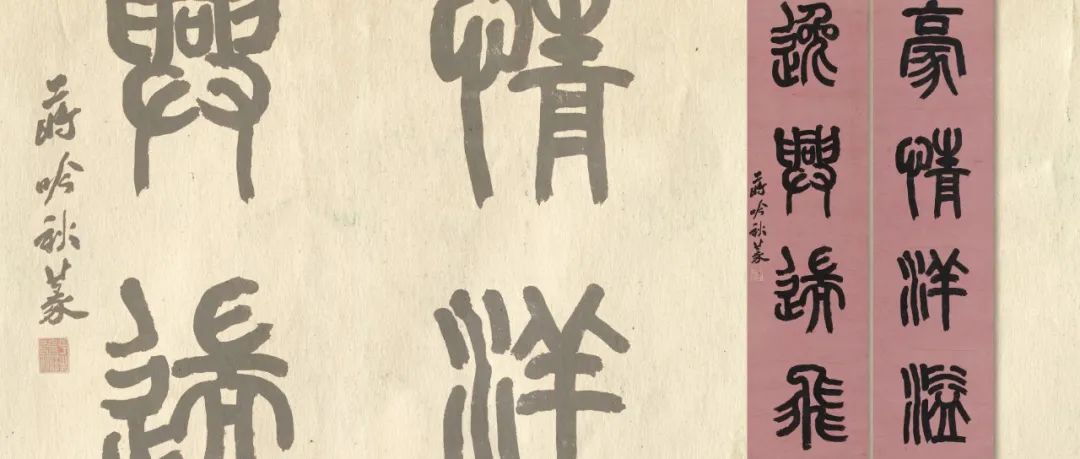 豪情洋溢
逸興遄飛
蔣吟秋篆
情洋
興遄
蔣吟秋篆